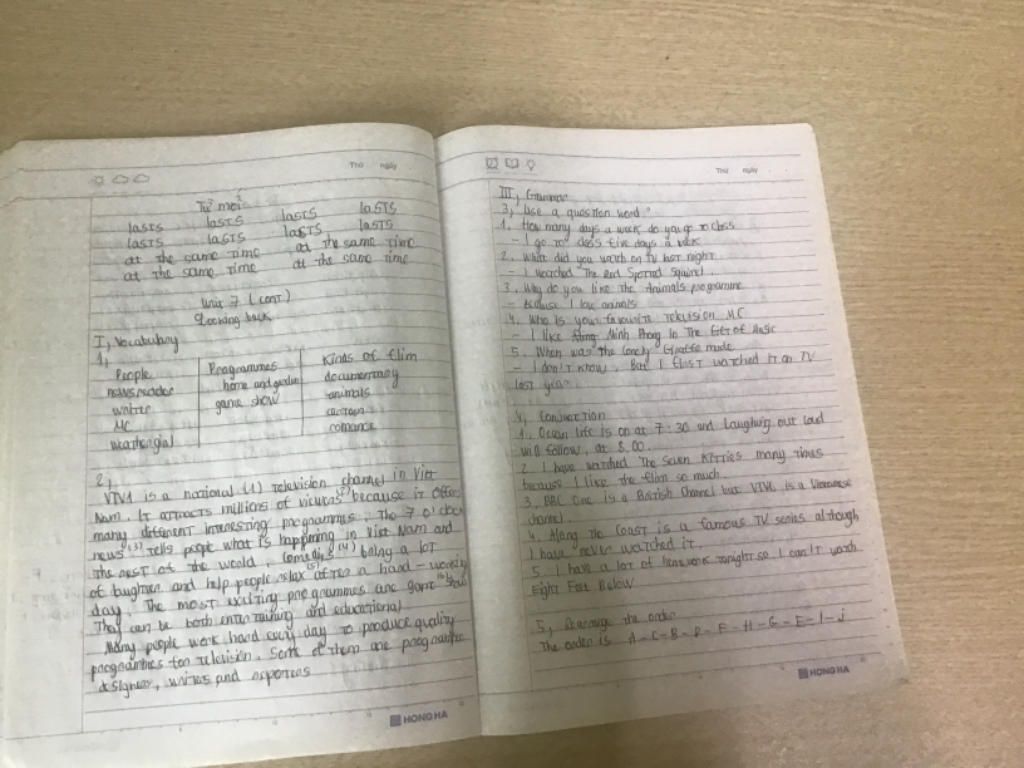 Thứ ngày
Từ mới
lasts lasts lasts lasts
lasts lasts lasts lasts
at the same time at the same time
at the same time at the same time
Unit 7 (cont)
Looking back
I, Vocabulary
1,
People Programmes Kinds of film
newsreader home and garden documentary
writer game show animals
MC cartoon
weathergirl romance
2,
VTV1 is a national (1) television channel in Viet
Nam. It attracts millions of viewers (2) because it offers
many different interesting programmes. The 7 o'clock
news (3) tells people what is happening in Viet Nam and
the rest of the world. Comedies (4) bring a lot
of laughter and help people relax (5) after a hard-working
day. The most exciting programmes are game (6) show
They can be both entertaining and educational
Many people work hard every day to produce quality
programmes for television. Some of them are programme
designers, writers and reporters
HONG HA
Thứ ngày
III, Grammar
3, Use a question word
1. How many days a week do you go to class
- I go to class five days a week
2. What did you watch on TV last night
- I watched The Red Spotted Squirrel.
3. Why do you like the Animals programme
- Because I love animals
4. Who is your favourite television MC
- I like Minh Phong In The Gift of Music
5. When was the lonely Giraffe made
- I don't know. But I first watched it on TV
last year
4, Conjunction
1. Ocean life is on at 7:30 and Laughing out loud
will follow, at 8.00.
2. I have watched The Seven Kitties many times
because I like the film so much.
3. BBC One is a British channel but VTV6 is a Vietnamese
channel.
4. Along the Coast is a famous TV series although
I have never watched it.
5. I have a lot of homework tonight so I can't watch
Eight Feet Below
5, Rearrange the order
The order is A-C-B-D-F-H-G-E-I-J
HONG HA